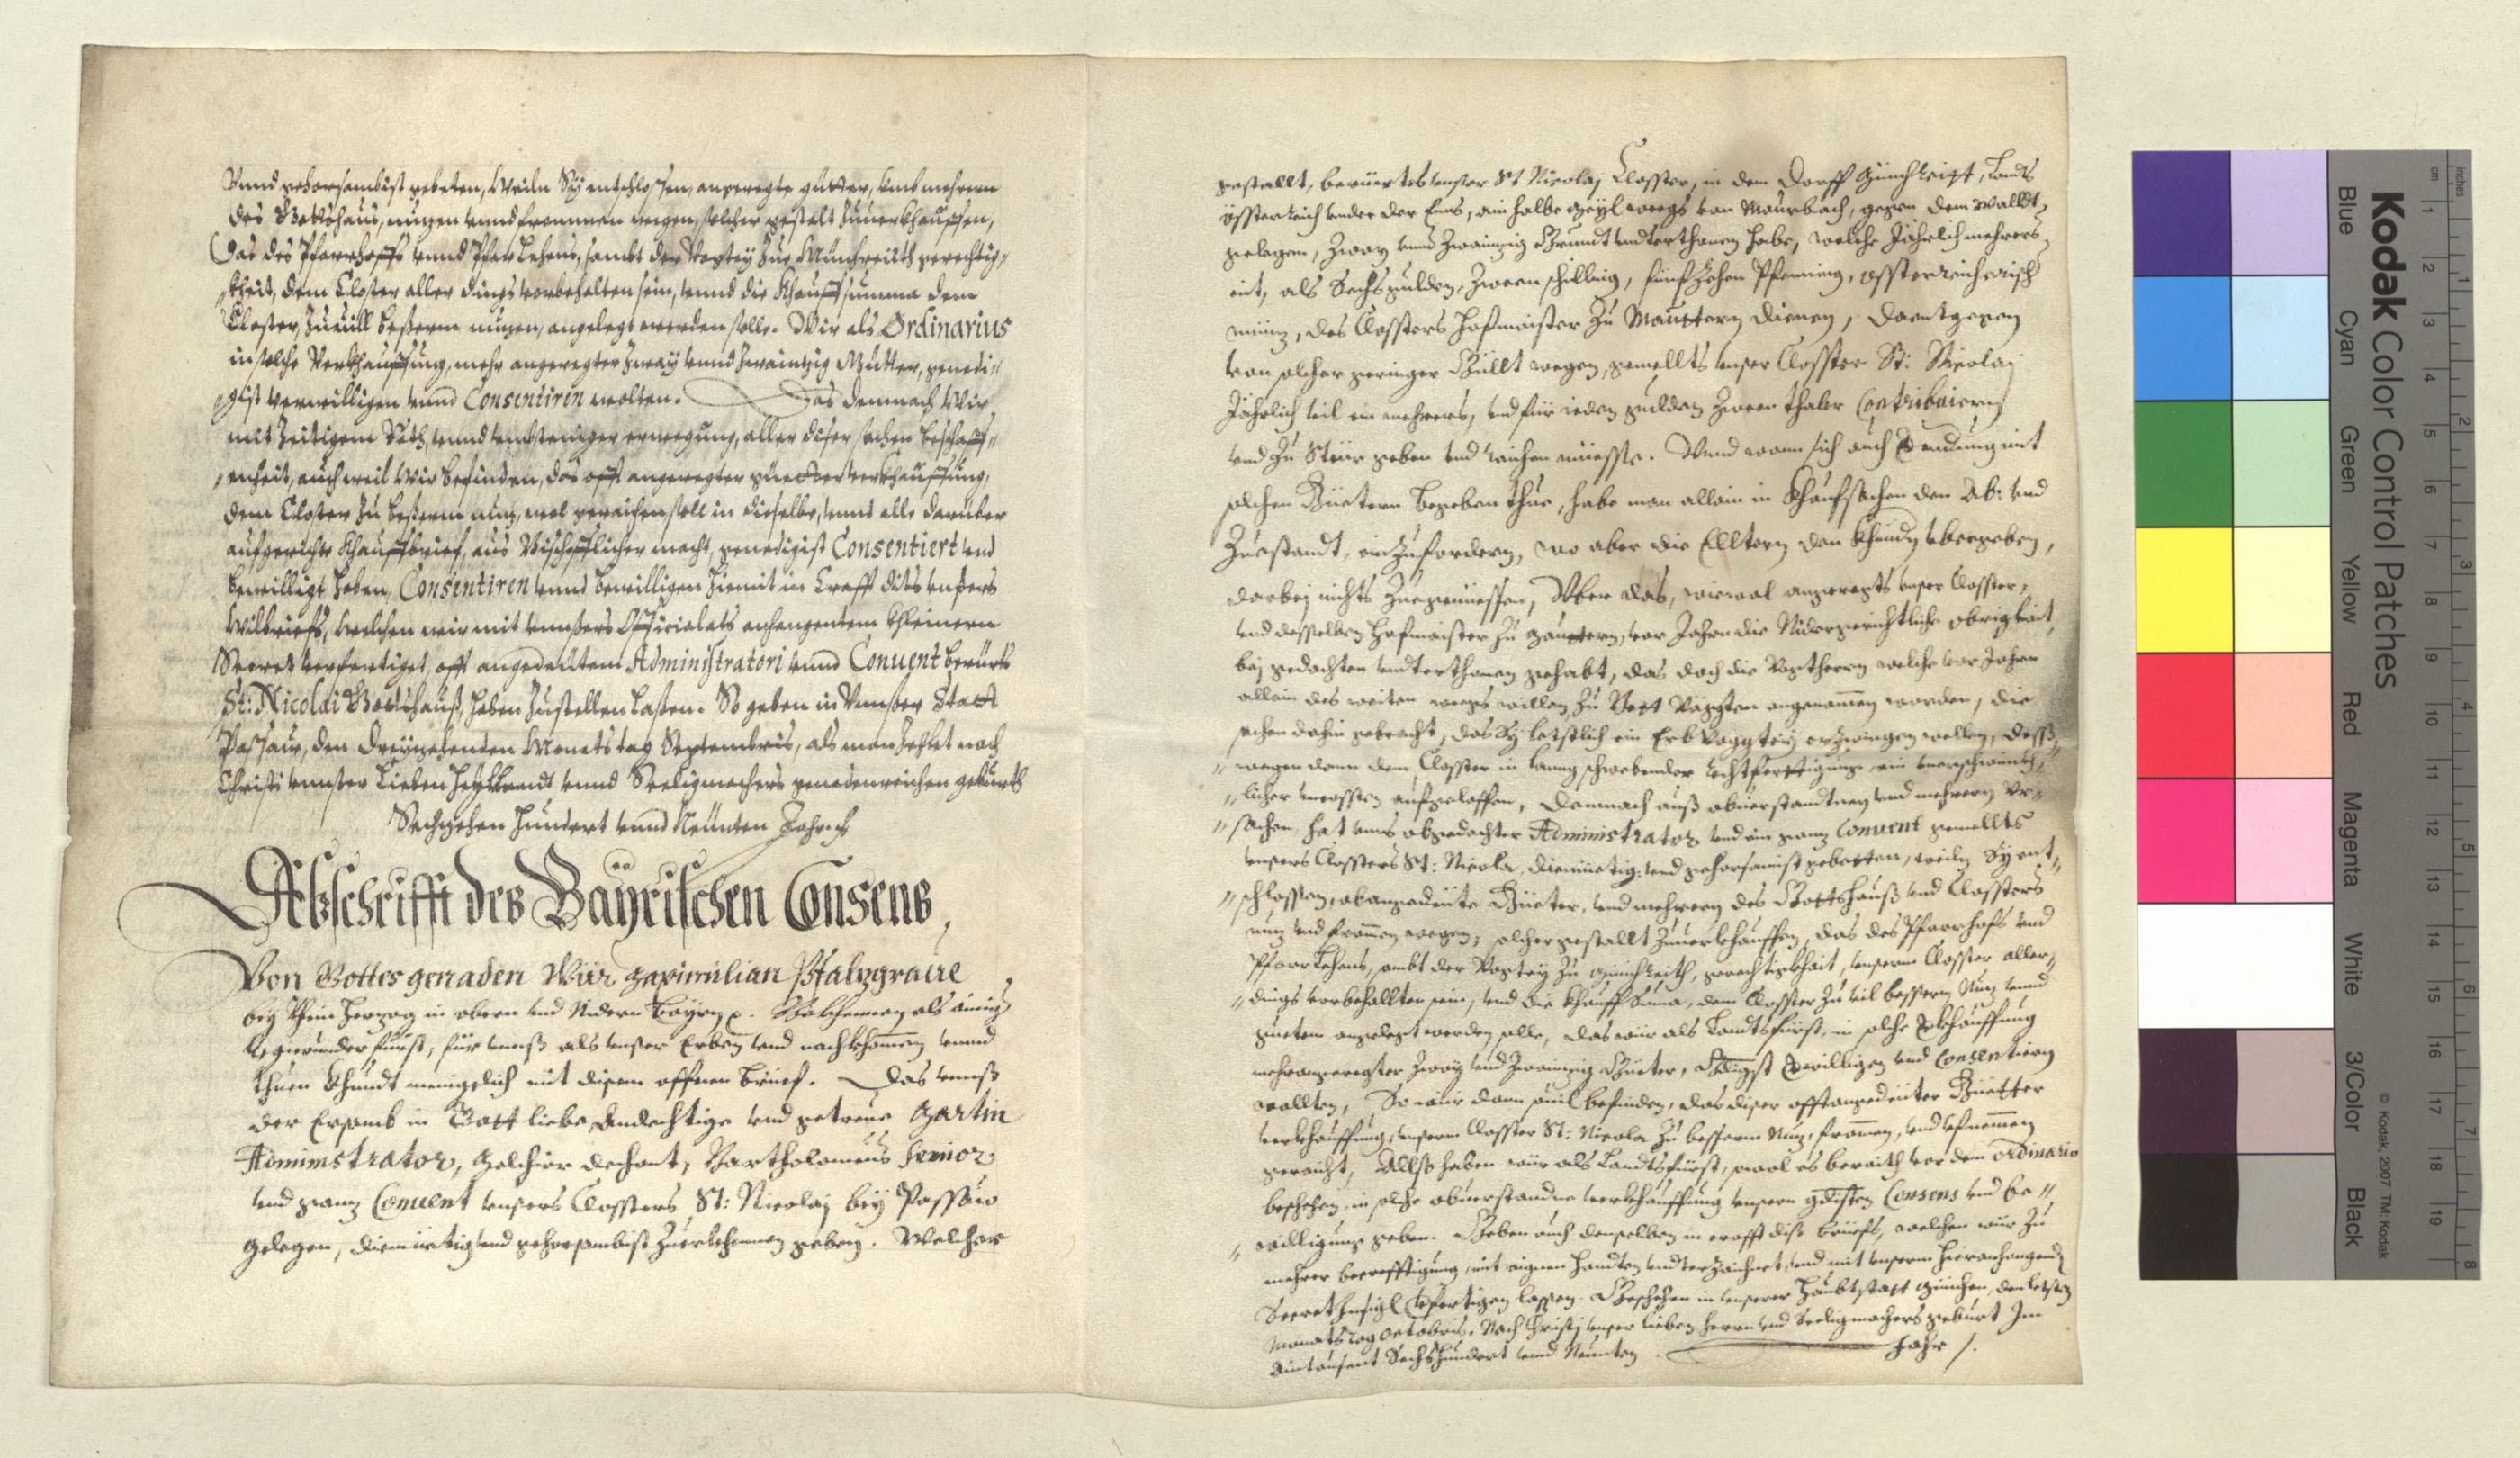 Vnnd gehorsambist gebeten, Weiln Sÿ entschlossen, angeregte gütter, vmb mehrern
des Gottshaus, nuzen vnnd frommen wegen, solcher gestalt Zuuerkhauffen,
Das des Pfarrhoffs vnnd Pfarrlehens, sambt der Vogtey Zue Münchreütth gerechtig„
„kheit, dem Closter aller dings vorbehalten sein, vnnd die Khauffsumma dem
Closter, Zu uill besserm nuzen, angelegt werden solle. Wir als Ordinarius
in solche Verkhauffung, mehr angeregter Zway vnnd Zwaintzig Gütter, genedi„
„gist verwilligen vnnd Consentiren wolten. Das demnach Wir
mit Zeitigem Rath, vnnd erwegung, aller diser sachen beschaff„
„enheit, auch weil Wir befinden, das offt angeregter güetter verkhauffung,
dem Closter Zu besserm nuz, wol geraichen soll in dieselbe, vnnd alle darüber
aufgerichte Khauffbrief, aus Bischofflicher macht, genedigist Consentiert vnd
bewilligt haben, Consentiren vnnd bewilligen hiemit in Crafft dits vnsers
Wilbriefs, Welchen wir mit vnnsers Officialats anhangentem Khleinern
Secret verfertiget, offt angedeütem Administratori vnnd Conuent berürts
St: Nicolai Gottshauß, haben Zustellen lassen. So geben in Vnnser Statt
Passaw, den Dreyzehenden Monats tag Septembris, als man Zehlet nach
Christi vnnsers Lieben Heyllandt vnnd Seeligmachers genedenreichen geburth
Sechzehen Hundert vnnd Neünten Jahrs
Abschrifft des Bayrischen Consens,
Von Gottes genaden Wür Maximilian Pfalzgraue
bey Rhein Herzog in obern vnd Nidern Bayrn etc. Bekhennen als ainig
Regierunder fürst, für vnnß als vnser Erben vnd nachkhommen vnnd
thuen khundt menigelich mit disem offnen brief. Das vnnß
der Ersamb in Gott liebe, Andechtige vnd getreue Martin
Administrator, Melchior dechant, Bartholomeus Senior
vnd ganz Conuent vnsers Clossters St: Nicolaj bey Passaw
gelegen, diemietig vnd gehorsambist Zuerkhennen geben. Welcher
gestallt, beruertes vnser St Nicolaj Closster, in dem Dorff Münchreitt, Landts
össterreich vnder der Enns, ain halbe Meyl weegs von Maurbach, gegen dem Walldt
gelegen, Zway vnnd Zwainzig Grundt vndterthonen habe, welche Jährlich mehrers
nit, als Sechs gulden, Zween schilling, fünfzehen Pfening, össterreicherisch
münz, des Clossters Hofmaister Zu Mauttern dienen, daentgegen
von solcher geringer Güllt wegen, gemellts vnser Closster St: Nicolaj
Jährlich vil ein mehrers, vnd für ieden gulden Zween thaler Contribuiern
vnd Zu Steur geben vnd raichen müesste. Vnnd wann sich auch Verendung mit
solchen Güetern begeben thue, habe man allain in Khaufsachen den Ab: vnd
Zuestandt, einZufordern, wo aber die Elltern den Khindern vbergeben,
darbej nichts Zuegeniessen, Vber das, wiewol angeregts vnser Closster,
vnd desselben Hofmaister Zu Mauttern, vor Jahrn die Nidergerichtliche obrigkhait,
bej gedachten vndterthonen gehabt, das doch die Vogtherrn welche vor Jahren
allain des weiten weegs willen, Zu Vögten angenommen worden, die
sachen dahin gebracht, das Sy letstlich ein Erb Voggtey erzwingen wellen, dess„
„wegen dann dem Closster in lanng schwebender rechtferttigung, ein
„licher vncossten aufgeloffen, Demnach auß obuerstandtnen vnd mehrern vr„
„sachen, hat vnns obgedachter Administrator vnd ein ganz Conuent gemellts
vnsers Clossters St: Nicola, diemüetig: vnd gehorsamist gebetten, weiln Sy ent„
„schlossen, obangedeute Güeter, vmb mehrern des Gottshauß vnd Clossters
nuz vnd frommen wegen, solcher gestallt Zuuerkhauffen, das des Pfarrhofs vnd
Pfarrlehens, sambt der Vogtey Zu Münchreith, gerechtigkhait, vnserm Closster aller„
„dings vorbehallten sein, vnd die Khauff Suma, dem Closster Zu vil bessern Nuz vnnd
guetem angelegt werden solle, das wür als Landtsfürst, in solche Verkhauffung
mehrangeregter Zway vnd Zwainzig Güeter, Gdigst Verwilligen vnd Consentiern
wollten, So wür dann souil befinden, das diser offtangedeuter Güetter
verkhauffung, vnserm Closster St: Nicola Zu besserm Nuz, frommen, vnd aufnemmen
geraicht, Allso haben wür als Landtsfürst, sowol es beraith vor dem ordinario
beschehen, in solche obuerstandne verkhauffung vnsern gdisten Consens vnd be„
„willigung geben. Geben auch denselben in crafft diß briefs, welchen wür Zu
mehrer becrefftigung, mit aignen Handten vndterZaichnet, vnd mit vnserm hieranhangendten
Secret Insigl Verfertigen lassen. Geschehen in vnserer Haubtstatt München, den letsten
Monatstag octobris. Nach Christj vnser lieben herrn vnd Seeligmachers geburt Im
Aintausent Sechshundert vnnd Neunten Jahr /.
Kodak Color Control Patches
Blue Cyan Green Yellow Red Magenta White 3/Color Black
© Kodak, 2007 TM: Kodak
cm 1 2 3 4 5 6 7 8 9 10 11 12 13 14 15 16 17 18 19
inches 1 2 3 4 5 6 7 8